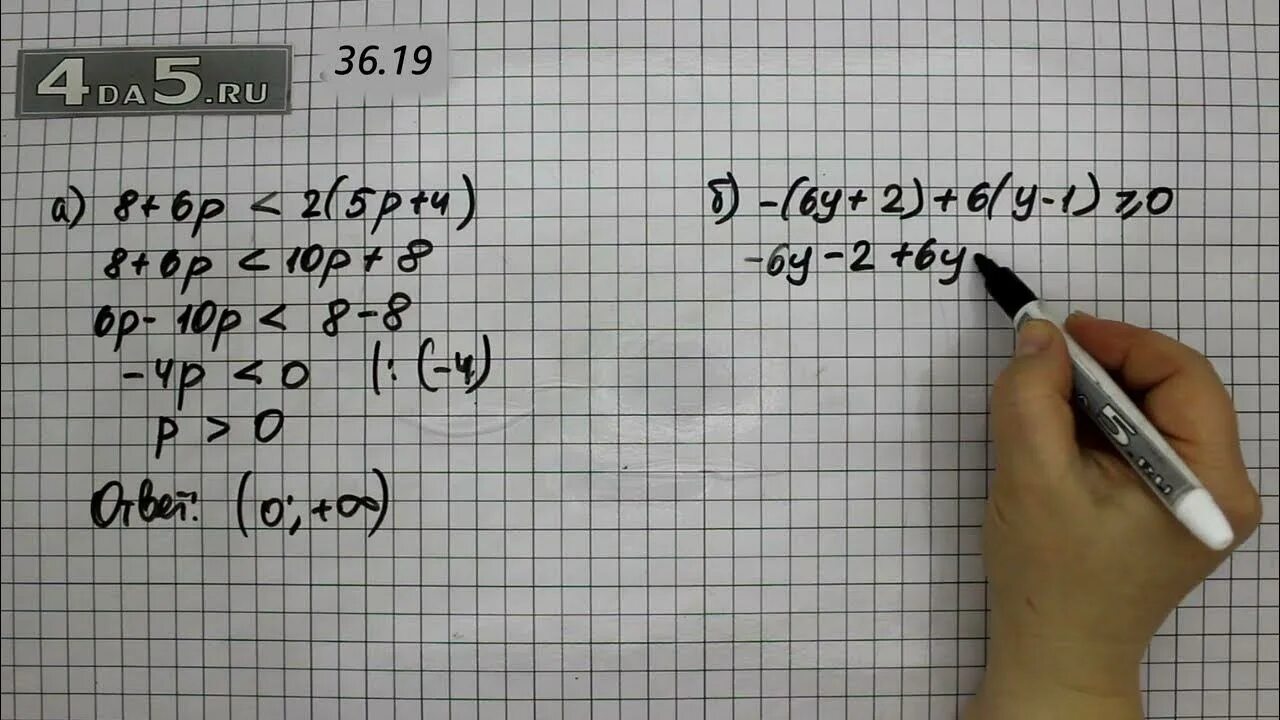 4DA5.RU
36.19
а) 8+6p < 2(5p+4)
8+6p < 10p+8
6p-10p < 8-8
-4p < 0 |:(-4)
p > 0
Ответ: (0; +∞)
б) -(6y+2)+6(y-1) ≥ 0
-6y-2+6y
5.RU